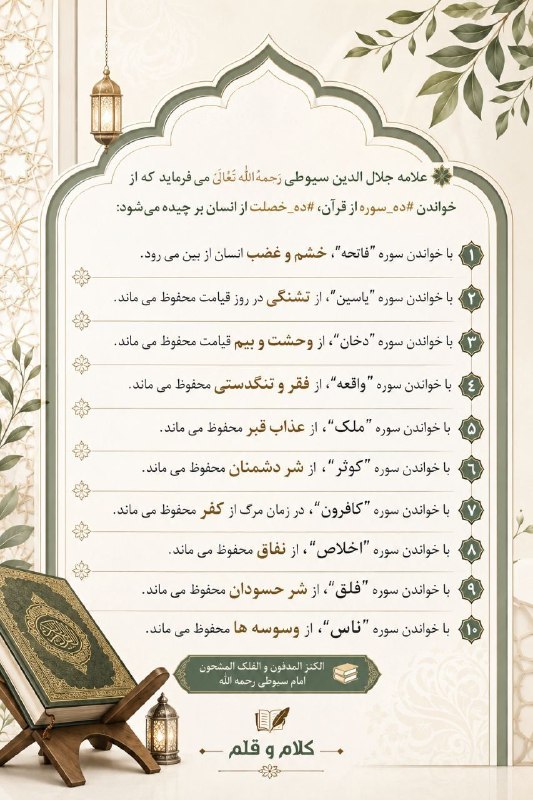 علامه جلال الدین سیوطی رَحمهُ الله تَعْالَیٰ می فرماید که از
خواندن #ده_سوره از قرآن، #ده_خصلت از انسان بر چیده می‌شود:
۱ با خواندن سوره "فاتحه"، خشم و غضب انسان از بین می رود.
۲ با خواندن سوره "یاسین"، از تشنگی در روز قیامت محفوظ می ماند.
۳ با خواندن سوره "دخان"، از وحشت و بیم قیامت محفوظ می ماند.
٤ با خواندن سوره "واقعه"، از فقر و تنگدستی محفوظ می ماند.
۵ با خواندن سوره "ملک"، از عذاب قبر محفوظ می ماند.
٦ با خواندن سوره "کوثر"، از شر دشمنان محفوظ می ماند.
۷ با خواندن سوره "کافرون"، در زمان مرگ از کفر محفوظ می ماند.
۸ با خواندن سوره "اخلاص"، از نفاق محفوظ می ماند.
۹ با خواندن سوره "فلق"، از شر حسودان محفوظ می ماند.
۱۰ با خواندن سوره "ناس"، از وسوسه ها محفوظ می ماند.
الکنز المدفون و الفلک المشحون
امام سیوطی رحمه الله
کلام و قلم